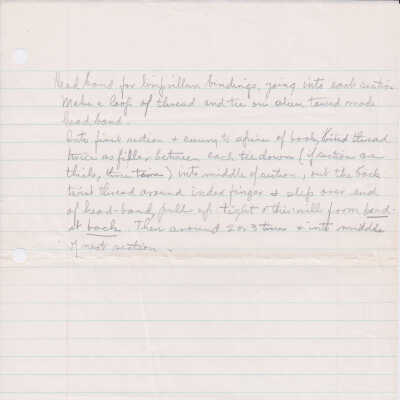 Head band for limp vellum bindings, going into each section
Make a loop of thread and tie on when toward made
head band.
Into first section & carry to spine of book, wind thread
twice as filler between each tie down (if section are
thick, three times) into middle of section, out the back
twist thread around index finger & slip over end
of head-band, pull up tight & this will form band
at back. Then around 2 or 3 times & into middle
of next section.